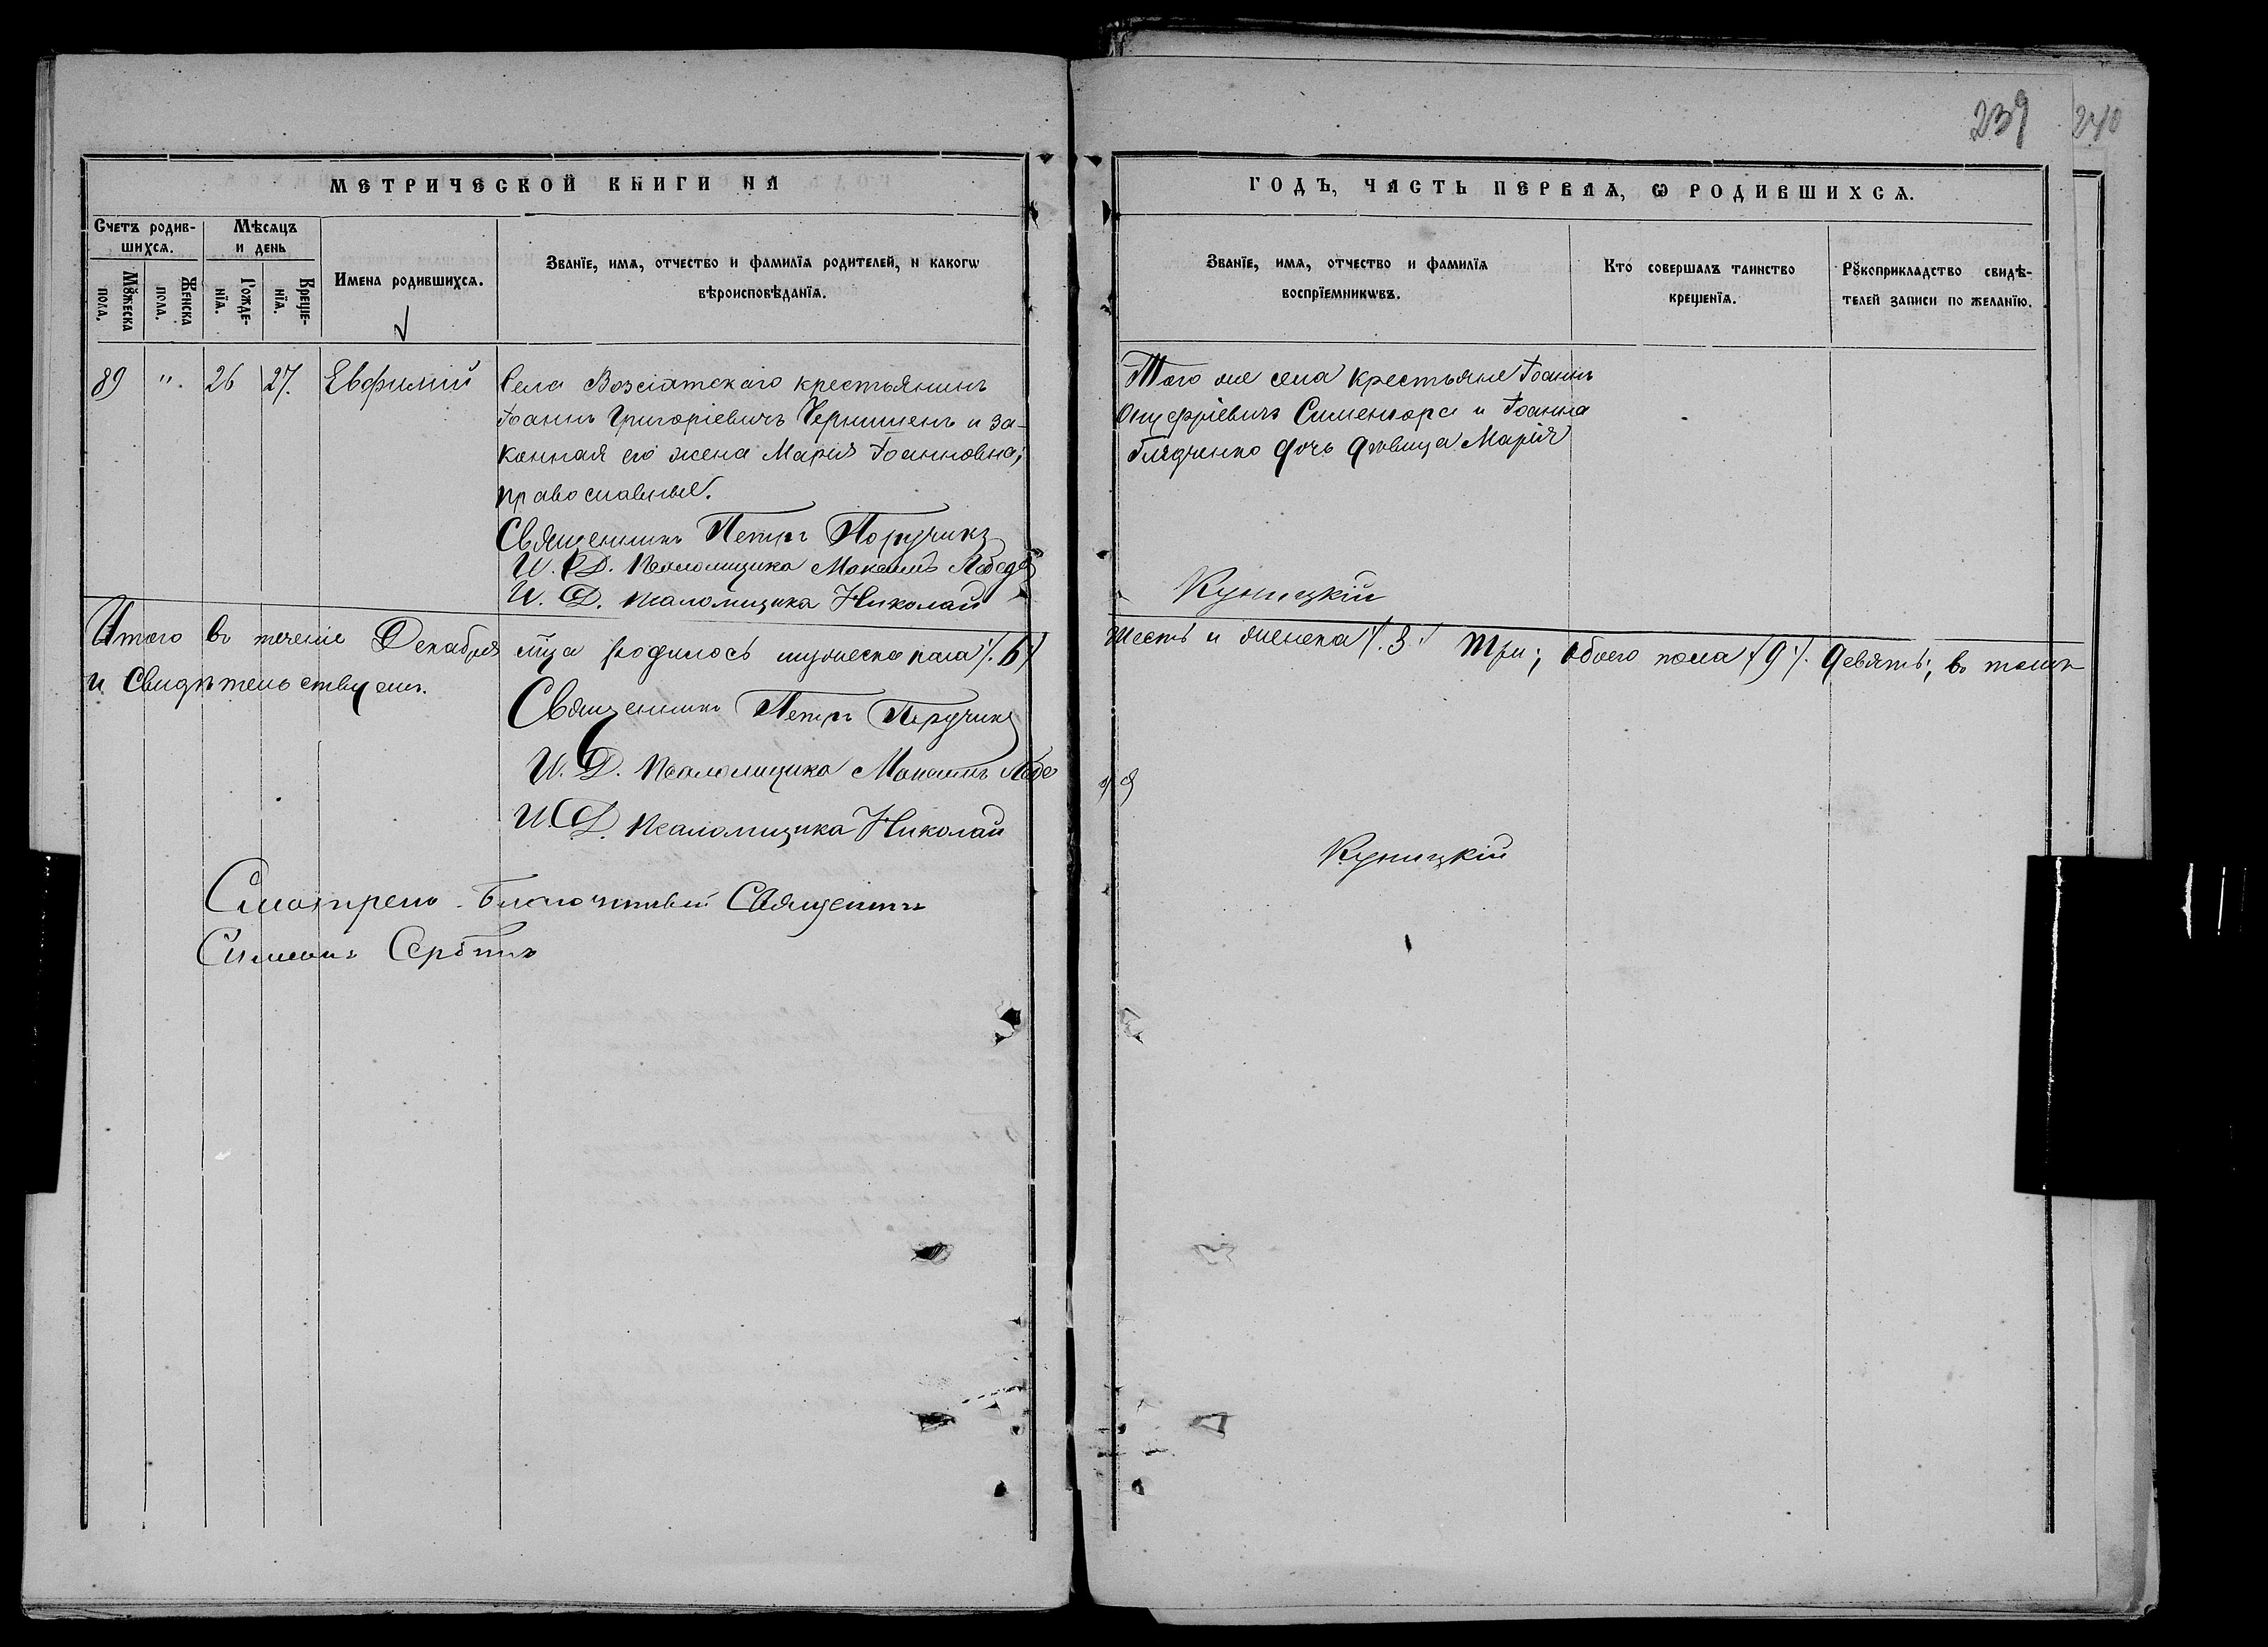 239
240
МЕТРИЧЕСКОЙ КНИГИ НА
ГОДЪ, ЧАСТЬ ПЕРВАѦ, Ѡ РОДИВШИХСѦ.
Счетъ родив-
шихсѧ.
Мѹжеска
пола.
Женска
пола.
Мѣсѧцъ
и день
Рожде-
нїѧ.
Креще-
нїѧ.
Имена родившихсѧ.
Званїе, имѧ, отчество и фамилїѧ родителей, и какогѡ
вѣроисповѣданїѧ.
Званїе, имѧ, отчество и фамилїѧ
воспрїемникѡвъ.
Кто совершалъ таинство
крещенїѧ.
Рѹкоприкладство свидѣ-
телей записи по желанїю.
89 " 26 27. Евфимій
Села Возсіятскаго крестьянинъ
Іоаннъ Григоріевичъ Чернишенъ и за-
конная его жена Марія Іоанновна;
православные.
Священникъ Петръ Поручикъ
И. Д. Псаломщика Максимъ Лебедь
И. Д. псаломщика Николай Куницкій
Того же села крестьяне Іоаннъ
Онуфріевичъ и Іоанна
дочь дѣвица Марія
Итого въ теченіе Декабря м̃ца родилось мужеска пола ٪ 6 ٪ шесть и женска ٪ 3 ٪ три; обоего пола ٪ 9 ٪ девять; въ томъ
и свидѣтельствуемъ.
Священникъ Петръ Поручикъ
И. Д. Псаломщика Максимъ Лебедь
И. Д. Псаломщика Николай Куницкій
Смотрелъ Благочинный Священникъ
Симеонъ Сербинъ